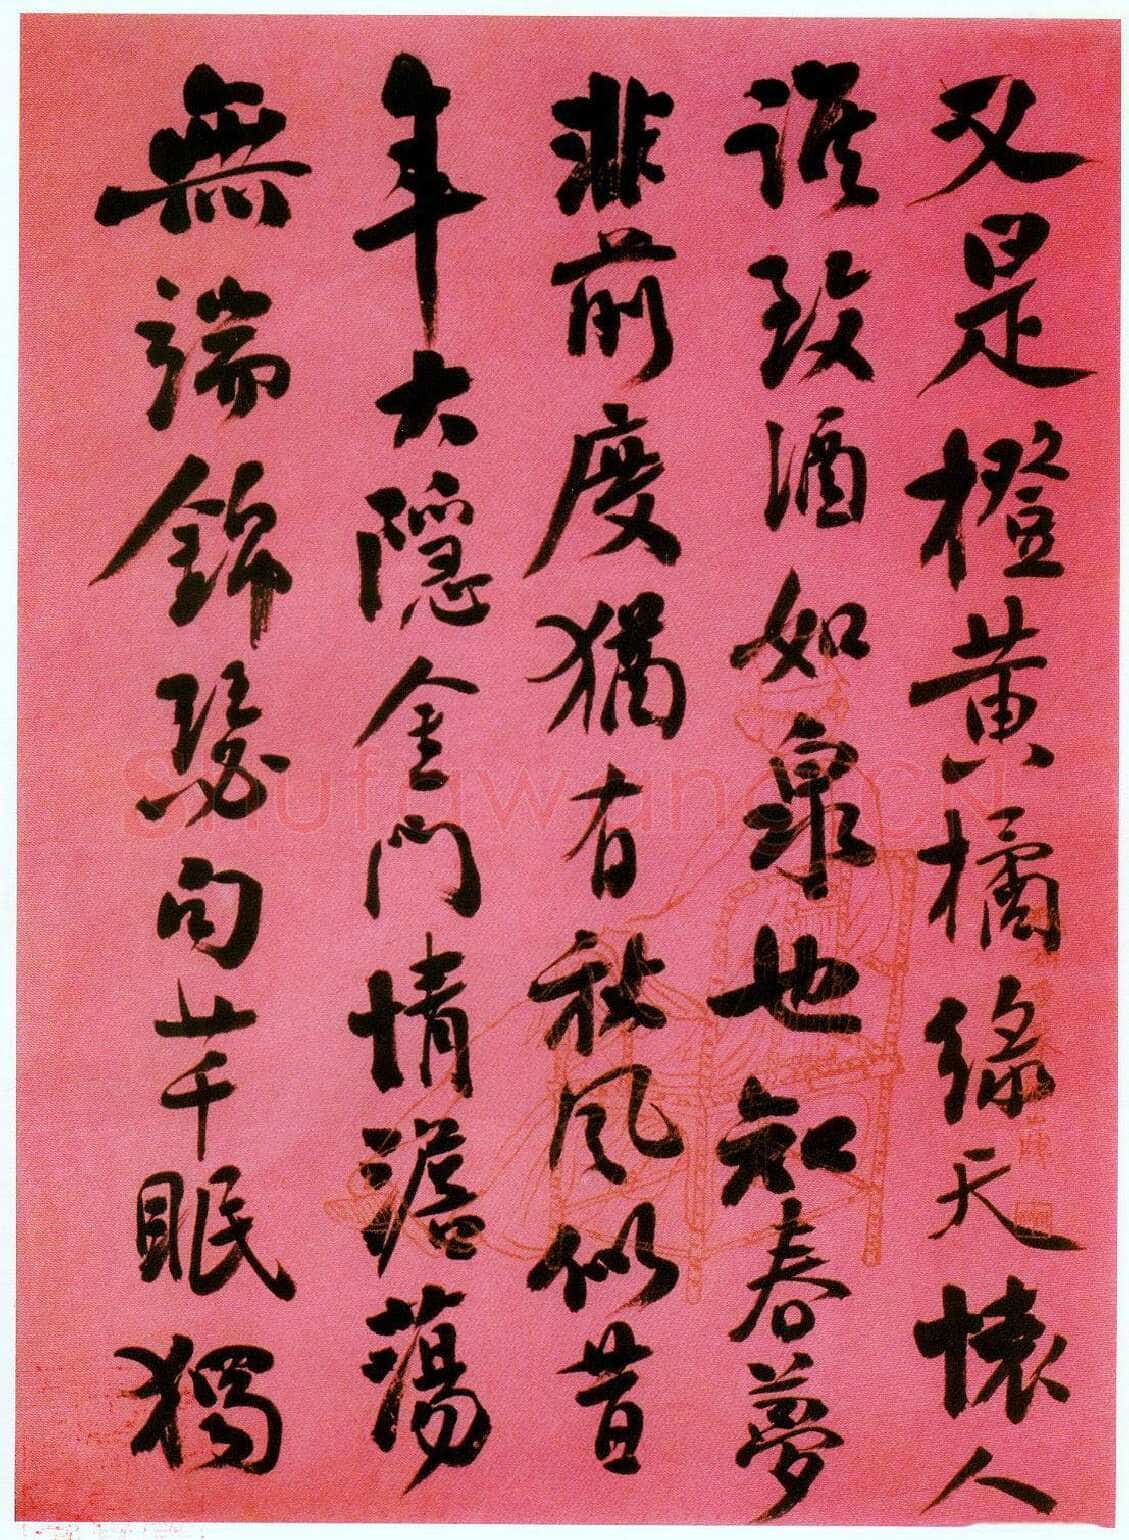 又是橙黃橘綠天懷人
誰致酒如泉也知春夢
非前度猶有秋風似昔
年大隱金門情澹蕩
無端錦瑟句芊眠獨
Shufawang.CN